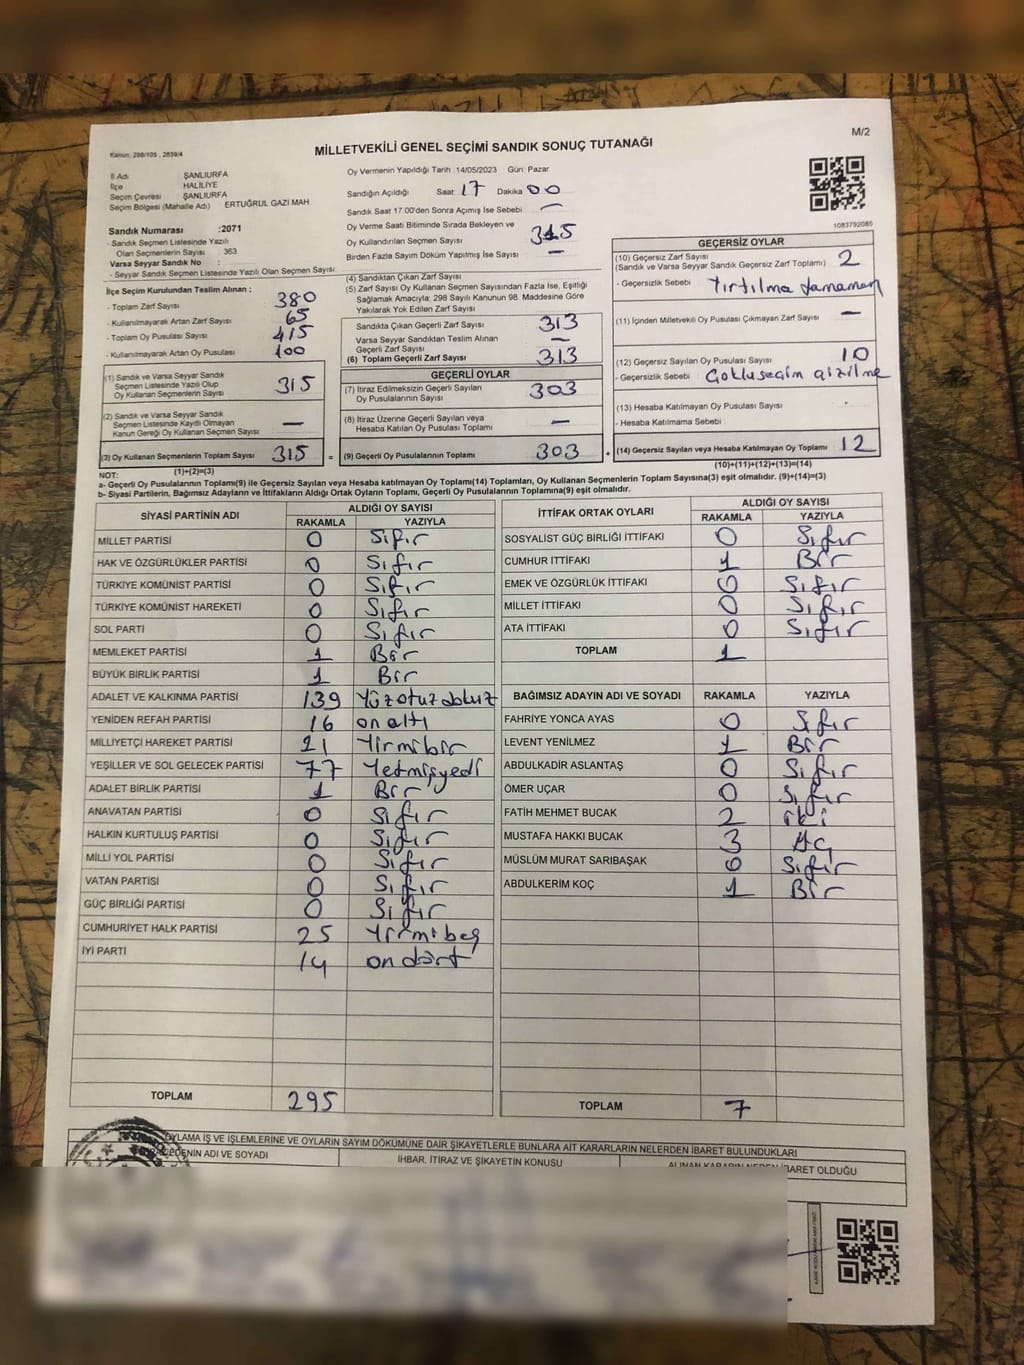 Kanun; 298/105 , 2839/4
MİLLETVEKİLİ GENEL SEÇİMİ SANDIK SONUÇ TUTANAĞI
M/2
İl Adı ŞANLIURFA
İlçe HALİLİYE
Seçim Çevresi ŞANLIURFA
Seçim Bölgesi (Mahalle Adı) ERTUĞRUL GAZİ MAH
Sandık Numarası :2071
- Sandık Seçmen Listesinde Yazılı
Olan Seçmenlerin Sayısı : 363
Varsa Seyyar Sandık No :
- Seyyar Sandık Seçmen Listesinde Yazılı Olan Seçmen Sayısı:
Oy Vermenin Yapıldığı Tarih :14/05/2023 Gün: Pazar
Sandığın Açıldığı Saat 17 Dakika 00
Sandık Saat 17:00'den Sonra Açımış İse Sebebi : —
Oy Verme Saati Bitiminde Sırada Bekleyen ve
Oy Kullandırılan Seçmen Sayısı 315
Birden Fazla Sayım Döküm Yapılmış İse Sayısı : —
1083792085
İlçe Seçim Kurulundan Teslim Alınan :
- Toplam Zarf Sayısı 380
- Kullanılmayarak Artan Zarf Sayısı 65
- Toplam Oy Pusulası Sayısı 415
- Kullanılmayarak Artan Oy Pusulası 100
(1) Sandık ve Varsa Seyyar Sandık
Seçmen Listesinde Yazılı Olup
Oy Kullanan Seçmenlerin Sayısı 315
(2) Sandık ve Varsa Seyyar Sandık
Seçmen Listesinde Kayıtlı Olmayan
Kanun Gereği Oy Kullanan Seçmen Sayısı —
(3) Oy Kullanan Seçmenlerin Toplam Sayısı 315 =
(1)+(2)=(3)
(4) Sandıktan Çıkan Zarf Sayısı
(5) Zarf Sayısı Oy Kullanan Seçmen Sayısından Fazla İse, Eşitliği
Sağlamak Amacıyla; 298 Sayılı Kanunun 98. Maddesine Göre
Yakılarak Yok Edilen Zarf Sayısı
Sandıkta Çıkan Geçerli Zarf Sayısı 313
Varsa Seyyar Sandıktan Teslim Alınan
Geçerli Zarf Sayısı —
(6) Toplam Geçerli Zarf Sayısı 313
GEÇERLİ OYLAR
(7) İtiraz Edilmeksizin Geçerli Sayılan
Oy Pusulalarının Sayısı 303
(8) İtiraz Üzerine Geçerli Sayılan veya
Hesaba Katılan Oy Pusulası Toplamı —
(9) Geçerli Oy Pusulalarının Toplamı 303 +
GEÇERSİZ OYLAR
(10) Geçersiz Zarf Sayısı 2
(Sandık ve Varsa Seyyar Sandık Geçersiz Zarf Toplamı)
- Geçersizlik Sebebi Yırtılma tamamen
(11) İçinden Milletvekili Oy Pusulası Çıkmayan Zarf Sayısı —
(12) Geçersiz Sayılan Oy Pusulası Sayısı 10
- Geçersizlik Sebebi
(13) Hesaba Katılmayan Oy Pusulası Sayısı
- Hesaba Katılmama Sebebi
(14) Geçersiz Sayılan veya Hesaba Katılmayan Oy Toplamı 12
(10)+(11)+(12)+(13)=(14)
NOT:
a- Geçerli Oy Pusulalarının Toplamı(9) ile Geçersiz Sayılan veya Hesaba katılmayan Oy Toplamı(14) Toplamları, Oy Kullanan Seçmenlerin Toplam Sayısına(3) eşit olmalıdır. (9)+(14)=(3)
b- Siyasi Partilerin, Bağımsız Adayların ve İttifakların Aldığı Ortak Oyların Toplamı, Geçerli Oy Pusulalarının Toplamına(9) eşit olmalıdır.
SİYASİ PARTİNİN ADI ALDIĞI OY SAYISI
RAKAMLA YAZIYLA
MİLLET PARTİSİ 0 Sıfır
HAK VE ÖZGÜRLÜKLER PARTİSİ 0 Sıfır
TÜRKİYE KOMÜNİST PARTİSİ 0 Sıfır
TÜRKİYE KOMÜNİST HAREKETİ 0 Sıfır
SOL PARTİ 0 Sıfır
MEMLEKET PARTİSİ 1 Bir
BÜYÜK BİRLİK PARTİSİ 1 Bir
ADALET VE KALKINMA PARTİSİ 139 Yüzotuzdokuz
YENİDEN REFAH PARTİSİ 16 on altı
MİLLİYETÇİ HAREKET PARTİSİ 21 Yirmi bir
YEŞİLLER VE SOL GELECEK PARTİSİ 77 Yetmişyedi
ADALET BİRLİK PARTİSİ 1 Bir
ANAVATAN PARTİSİ 0 Sıfır
HALKIN KURTULUŞ PARTİSİ 0 Sıfır
MİLLİ YOL PARTİSİ 0 Sıfır
VATAN PARTİSİ 0 Sıfır
GÜÇ BİRLİĞİ PARTİSİ 0 Sıfır
CUMHURİYET HALK PARTİSİ 25 Yirmi beş
İYİ PARTİ 14 on dört
TOPLAM 295
İTTİFAK ORTAK OYLARI ALDIĞI OY SAYISI
RAKAMLA YAZIYLA
SOSYALİST GÜÇ BİRLİĞİ İTTİFAKI 0 Sıfır
CUMHUR İTTİFAKI 1 Bir
EMEK VE ÖZGÜRLÜK İTTİFAKI 0 Sıfır
MİLLET İTTİFAKI 0 Sıfır
ATA İTTİFAKI 0 Sıfır
TOPLAM 1
BAĞIMSIZ ADAYIN ADI VE SOYADI RAKAMLA YAZIYLA
FAHRİYE YONCA AYAS 0 Sıfır
LEVENT YENİLMEZ 1 Bir
ABDULKADİR ASLANTAŞ 0 Sıfır
ÖMER UÇAR 0 Sıfır
FATİH MEHMET BUCAK 2 iki
MUSTAFA HAKKI BUCAK 3 üç
MÜSLÜM MURAT SARIBAŞAK 0 Sıfır
ABDULKERİM KOÇ 1 Bir
TOPLAM 7
OYLAMA İŞ VE İŞLEMLERİNE VE OYLARIN SAYIM DÖKÜMÜNE DAİR ŞİKAYETLERLE BUNLARA AİT KARARLARIN NELERDEN İBARET BULUNDUKLARI
ADI VE SOYADI İHBAR, İTİRAZ VE ŞİKAYETİN KONUSU ALINAN KARARIN NEDEN İBARET OLDUĞU